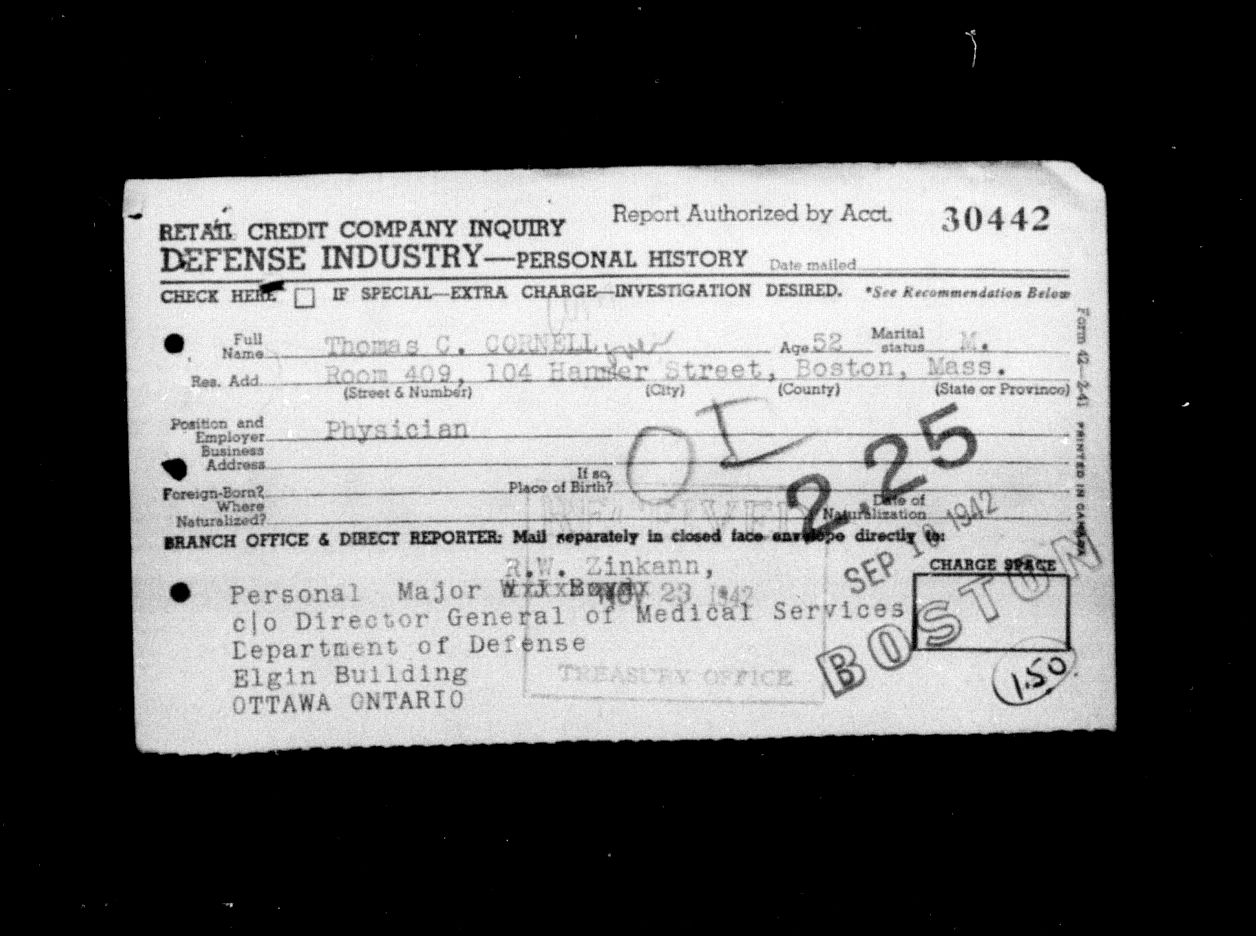 RETAIL CREDIT COMPANY INQUIRY
Report Authorized by Acct. 30442
DEFENSE INDUSTRY—PERSONAL HISTORY
Date mailed
CHECK HERE IF SPECIAL—EXTRA CHARGE—INVESTIGATION DESIRED. *See Recommendation Below
Form 42—2-41 PRINTED IN CANADA
Full Name Thomas C. CORNELL Age 52 Marital status M.
Res. Add. Room 409, 104 Hanmer Street, Boston, Mass.
(Street & Number) (City) (County) (State or Province)
Position and Employer Physician
Business Address
OI
2.25
Foreign-Born? If so, Place of Birth?
Where Naturalized? Date of Naturalization
RECEIVED
SEP 10 1942
BRANCH OFFICE & DIRECT REPORTER: Mail separately in closed face envelope directly to:
R.W. Zinkann,
CHARGE SPACE
Personal Major
NOV 23 1942
c/o Director General of Medical Services
Department of Defense
Elgin Building
TREASURY OFFICE
BOSTON
1.50
OTTAWA ONTARIO